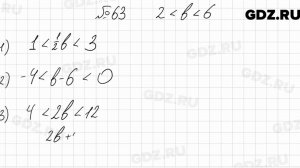 №63 2 < b < 6 GDZ.RU
1) 1 < 1/2 b < 3
2) -4 < b-6 < 0
3) 4 < 2b < 12
2b +
GDZ.RU